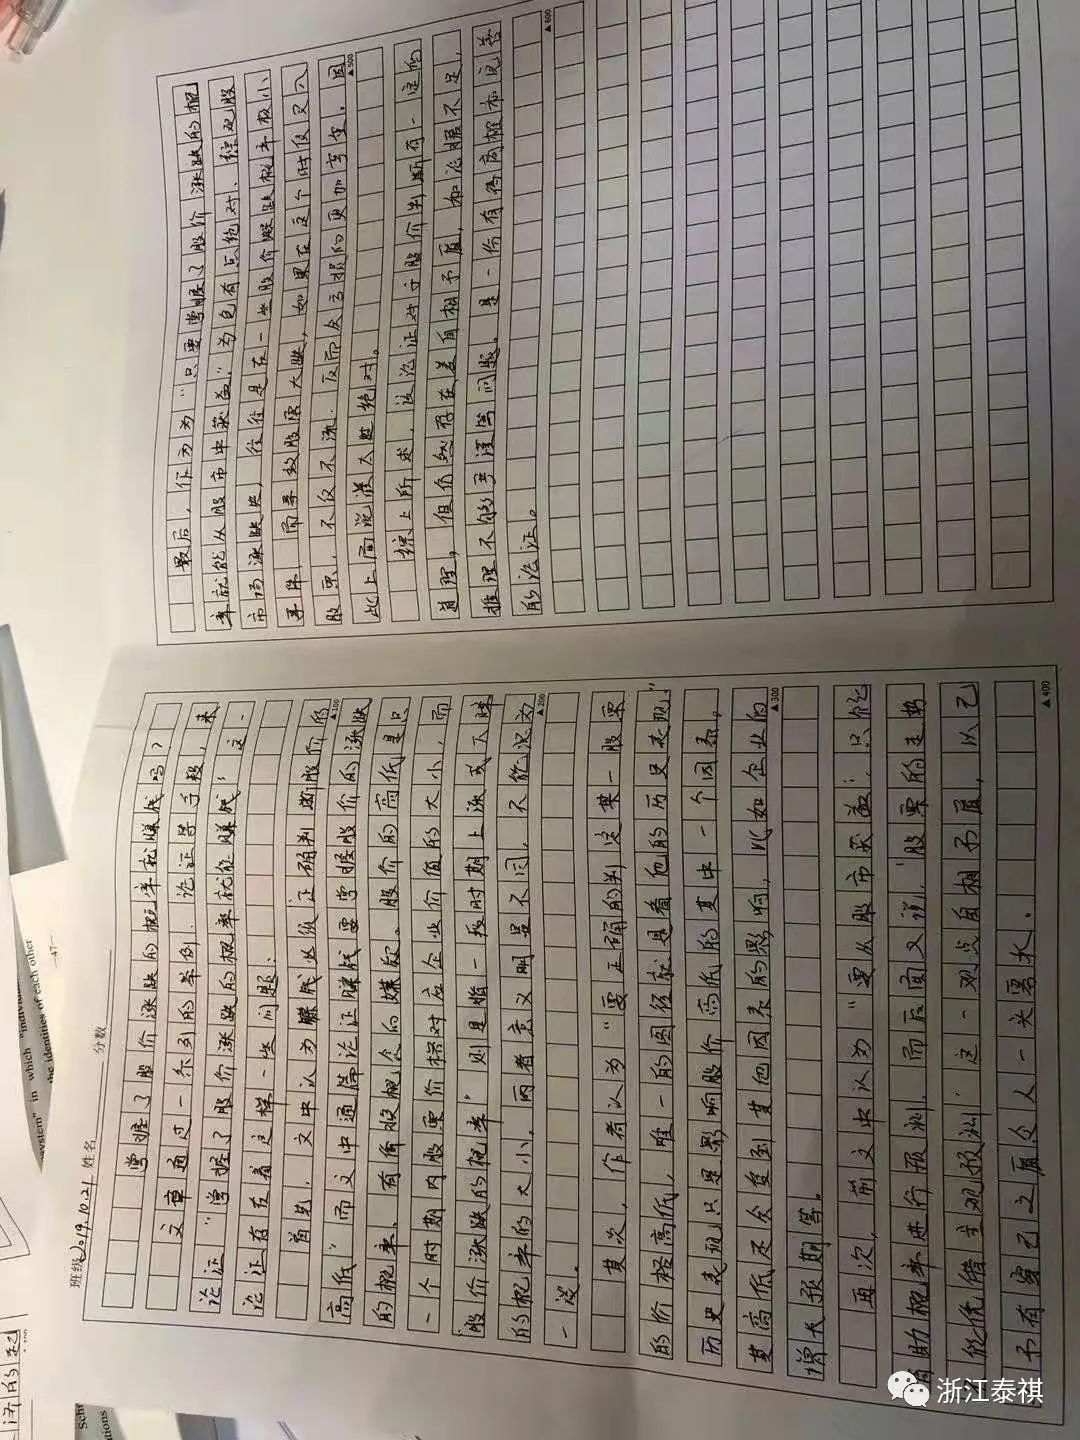 班级2019.10.21 姓名 分数
掌握了股价涨跌的概率就赚钱吗？
文章通过一系列的举例、论证等手段，来
论证“掌握了股价涨跌的概率就能赚钱”这一
论证存在着这样一些问题：
首先，文中认为赚钱必须正确判断股价的
▲100
高低，而文中通篇论证赚钱要掌握股价的涨跌
的概率，有偷换概念的嫌疑。股价的高低是只
一个时期内股票价格对应企业价值的大小，而
“股价涨跌的概率”则是指一段时期上涨或下跌
的概率的大小，两者意义明显不同，不能混为
▲200
一谈。
其次，作者认为“要正确的判定某一股票
的价格高低，唯一的图径就是看他的历史表现”
历史表现只是影响股价高低的其中一个因素，
其高低还会受到其他因素的影响，比如企业的
▲300
增长预期等。
再次，前文中认为“要从股市获益，只能
借助概率进行预测，而后面又说，“股票的走势
只能凭借主观预测”这一观点自相矛盾，以己
不有害己之盾令人一头雾水。
▲400
最后，作为为“只要掌握了股价涨跌的概
率就能从股市中获益”为免有点绝对、综观股
市场涨跌史，往往是在一些股价爆跌概率极小
事件，而导致股票大跌，如果在这个时侯买入
股票，不仅不涨，反而会亏损的更加严重，因
▲500
此上面说法太过绝对。
综上所述，该论证对于股价判断有一定的
道理，但仍然存在着自相矛盾，和论据不足，
推理不够严谨等问题，是一份有待商榷和完善
▲600
的论证。
system" in which "individu
the identities of each other
—47—
Sch
ations
济的起
浙江泰祺